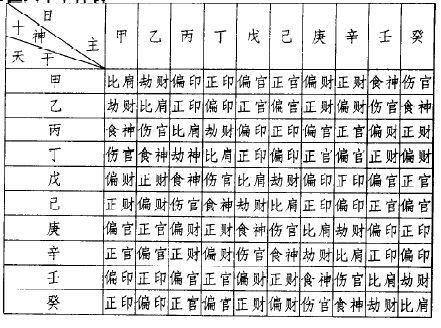 日
十神 主 甲 乙 丙 丁 戊 己 庚 辛 壬 癸
天干
甲 比肩 劫财 偏印 正印 偏官 正官 偏财 正财 食神 伤官
乙 劫财 比肩 正印 偏印 正官 偏官 正财 偏财 伤官 食神
丙 食神 伤官 比肩 劫财 偏印 正印 偏官 正官 偏财 正财
丁 伤官 食神 劫神 比肩 正印 偏印 正官 偏官 正财 偏财
戊 偏财 正财 食神 伤官 比肩 劫财 偏印 正印 偏官 正官
己 正财 偏财 伤官 食神 劫财 比肩 正印 偏印 正官 偏官
庚 偏官 正官 偏财 正财 食神 伤官 比肩 劫财 偏印 正印
辛 正官 偏官 正财 偏财 伤官 食神 劫财 比肩 正印 偏印
壬 偏印 正印 偏官 正官 偏财 正财 食神 伤官 比肩 劫财
癸 正印 偏印 正官 偏官 正财 偏财 伤官 食神 劫财 比肩